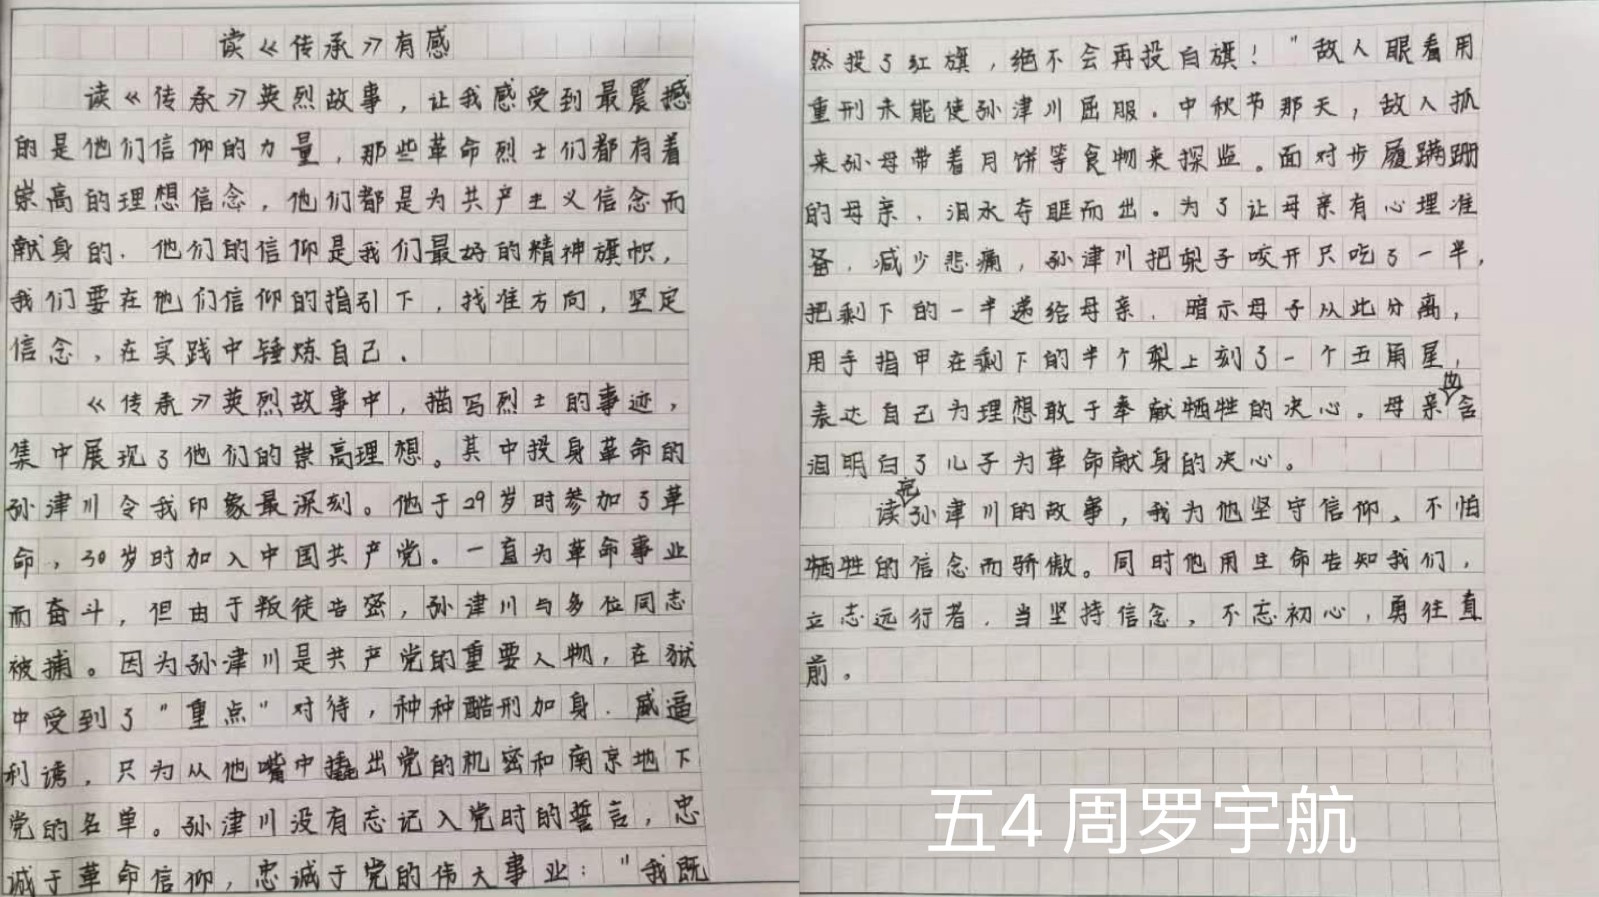 读《传承》有感
读《传承》英烈故事，让我感受到最震撼
的是他们信仰的力量，那些革命烈士们都有着
崇高的理想信念，他们都是为共产主义信念而
献身的．他们的信仰是我们最好的精神旗帜，
我们要在他们信仰的指引下，找准方向，坚定
信念，在实践中锤炼自己．
《传承》英烈故事中，描写烈士的事迹，
集中展现了他们的崇高理想。其中投身革命的
孙津川令我印象最深刻。他于29岁时参加了革
命，30岁时加入中国共产党。一直为革命事业
而奋斗，但由于叛徒告密，孙津川与多位同志
被捕。因为孙津川是共产党的重要人物，在狱
中受到了"重点"对待，种种酷刑加身．威逼
利诱，只为从他嘴中撬出党的机密和南京地下
党的名单。孙津川没有忘记入党时的誓言，忠
诚于革命信仰，忠诚于党的伟大事业："我既
然投了红旗，绝不会再投白旗！"敌人眼看用
重刑未能使孙津川屈服．中秋节那天，敌人抓
来孙母带着月饼等食物来探监。面对步履蹒跚
的母亲，泪水夺眶而出。为了让母亲有心理准
备，减少悲痛，孙津川把梨子咬开只吃了一半，
把剩下的一半递给母亲．暗示母子从此分离，
用手指甲在剩下的半个梨上刻了一个五角星，
表达自己为理想敢于奉献牺牲的决心。母亲含
泪明白了儿子为革命献身的决心。
读完孙津川的故事，我为他坚守信仰、不怕
牺牲的信念而骄傲。同时他用生命告知我们，
立志远行者．当坚持信念，不忘初心，勇往直
前。
五4 周罗宇航